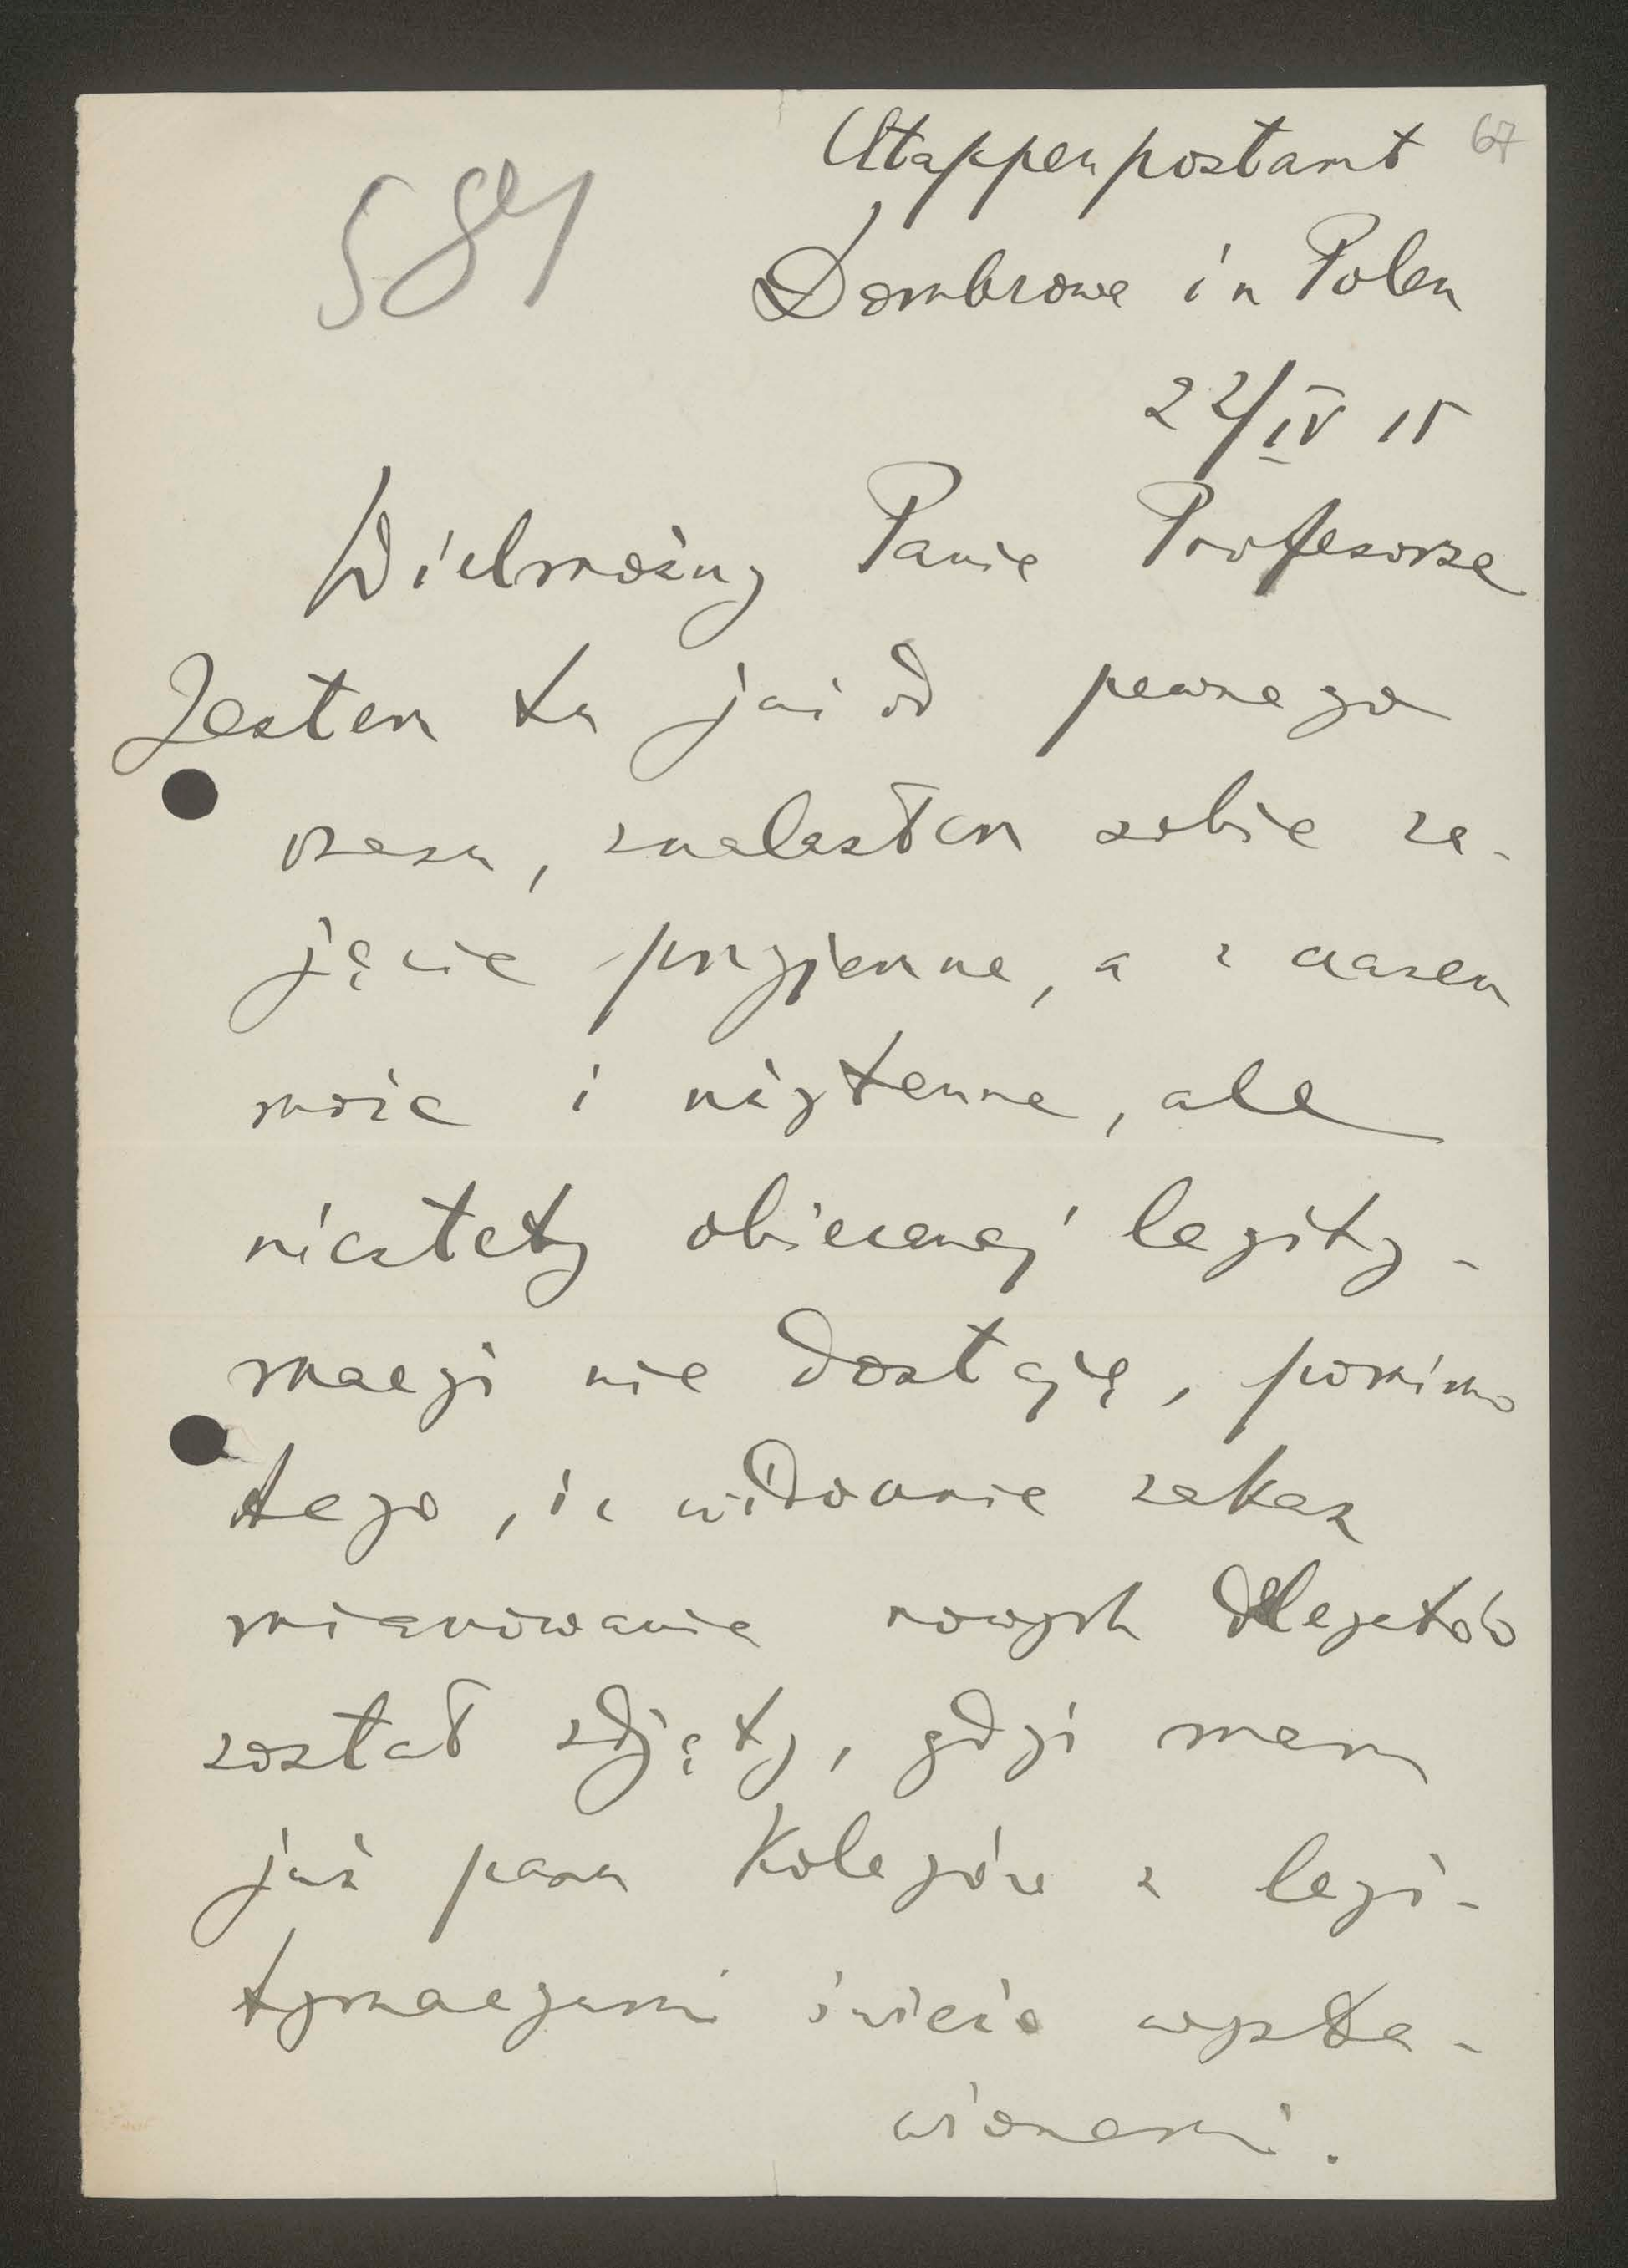 67
584
Etappenpostamt
Dombrowa in Polen
22/IV 15
Wielmożny Panie Profesorze
Jestem tu już od pewnego
czasu, znalazłem sobie za-
jęcie przyjemne, a z czasem
może i użyteczne, ale
niestety obiecanej legity-
macji nie dostaję, pomimo
tego, iż widocznie zakaz
mianowania nowych delegatów
został zdjęty, gdyż mam
już paru Kolegów z legi-
tymacjami świeżo wysta-
wionemi.